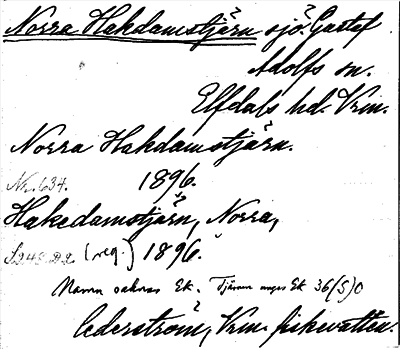 Norra Hakdamstjärn sjö. Gustaf
Adolfs sn.
Elfdals hd. Vrm.
Norra Hakdamstjärn.
Nr. 634. 1896.
Hakedamstjärn, Norra,
S248 D2 (reg.) 1896.
Namn saknas Ek. Tjärnen anges Ek 36(5)0
Cederström, Vrm. fiskevatten.